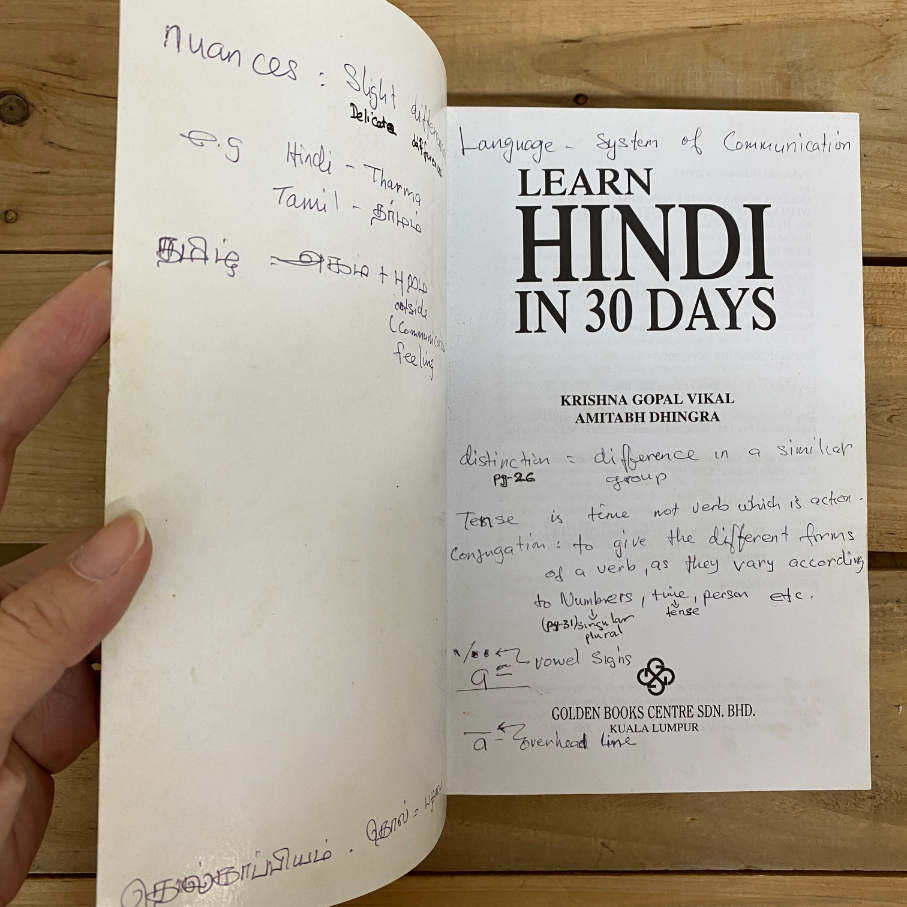 nuances : Slight
Delicate
e.g Hindi - Tharma
Tamil - தர்மம்
தமிழ் = அகம் + புறம்
outside
feeling
தொல்காப்பியம் . தொல் =
Language - System of Communication
LEARN
HINDI
IN 30 DAYS
KRISHNA GOPAL VIKAL
AMITABH DHINGRA
distinction = difference in a similar
pg-26 group
Tense is time not verb which is action.
Conjugation : to give the different forms
of a verb, as they vary according
to Numbers, time, person etc.
(pg-31) singular tense
plural
vowel signs
a
GOLDEN BOOKS CENTRE SDN. BHD.
KUALA LUMPUR
a overhead line